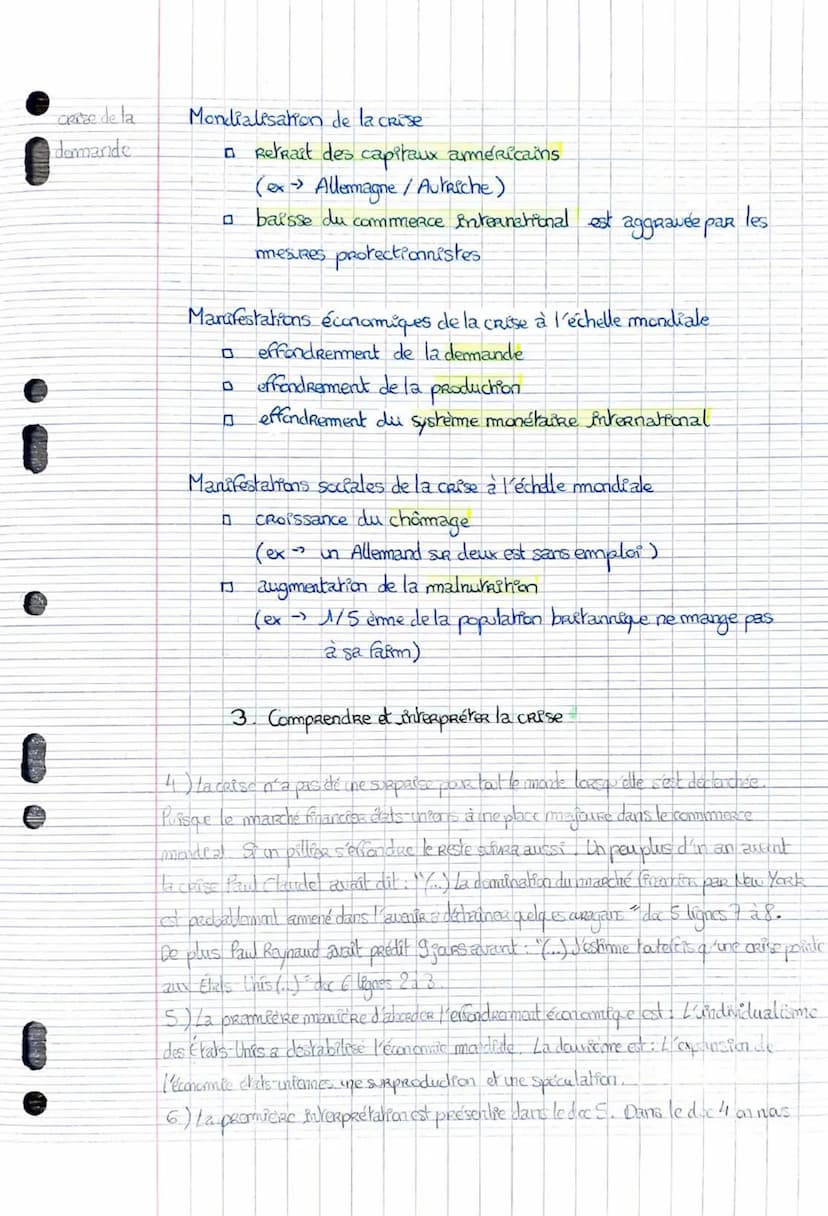 crise de la
demande
Mondialisation de la crise
retrait des capitaux américains
(ex → Allemagne / Autriche)
baisse du commerce international est aggravée par les
mesures protectionnistes
Manifestations économiques de la crise à l'échelle mondiale
effondrement de la demande
effondrement de la production
effondrement du système monétaire international
Manifestations sociales de la crise à l'échelle mondiale
croissance du chômage
(ex → un Allemand sur deux est sans emploi)
augmentation de la malnutrition
(ex → 1/5 ème de la population britannique ne mange pas
à sa faim)
3. Comprendre et interpréter la crise
4) La crise n'a pas été une surprise pour tout le monde lorsqu'elle s'est déclenchée.
Puisque le marché financier états-uniens à une place majeure dans le commerce
mondial. Si un pillier s'effondre le reste suivra aussi. Un peu plus d'un an avant
la crise Paul Claudel avait dit : "(...) La domination du marché financier par New York
est probablement amené dans l'avenir à déchaîner quelques ouragans" doc 5 lignes 7 à 8.
De plus Paul Reynaud avait prédit 9 jours avant : "(...) J'estime toutefois qu'une crise pointe
aux États-Unis (...)" doc 6 lignes 2 à 3.
5) La première manière d'aborder l'effondrement économique est : L'individualisme
des États-Unis a destabilisé l'économie mondiale. La deuxième est : L'expansion de
l'économie états-uniennes, une surproduction et une spéculation.
6) La première interprétation est présentée dans le doc 5. Dans le doc 4 on nous